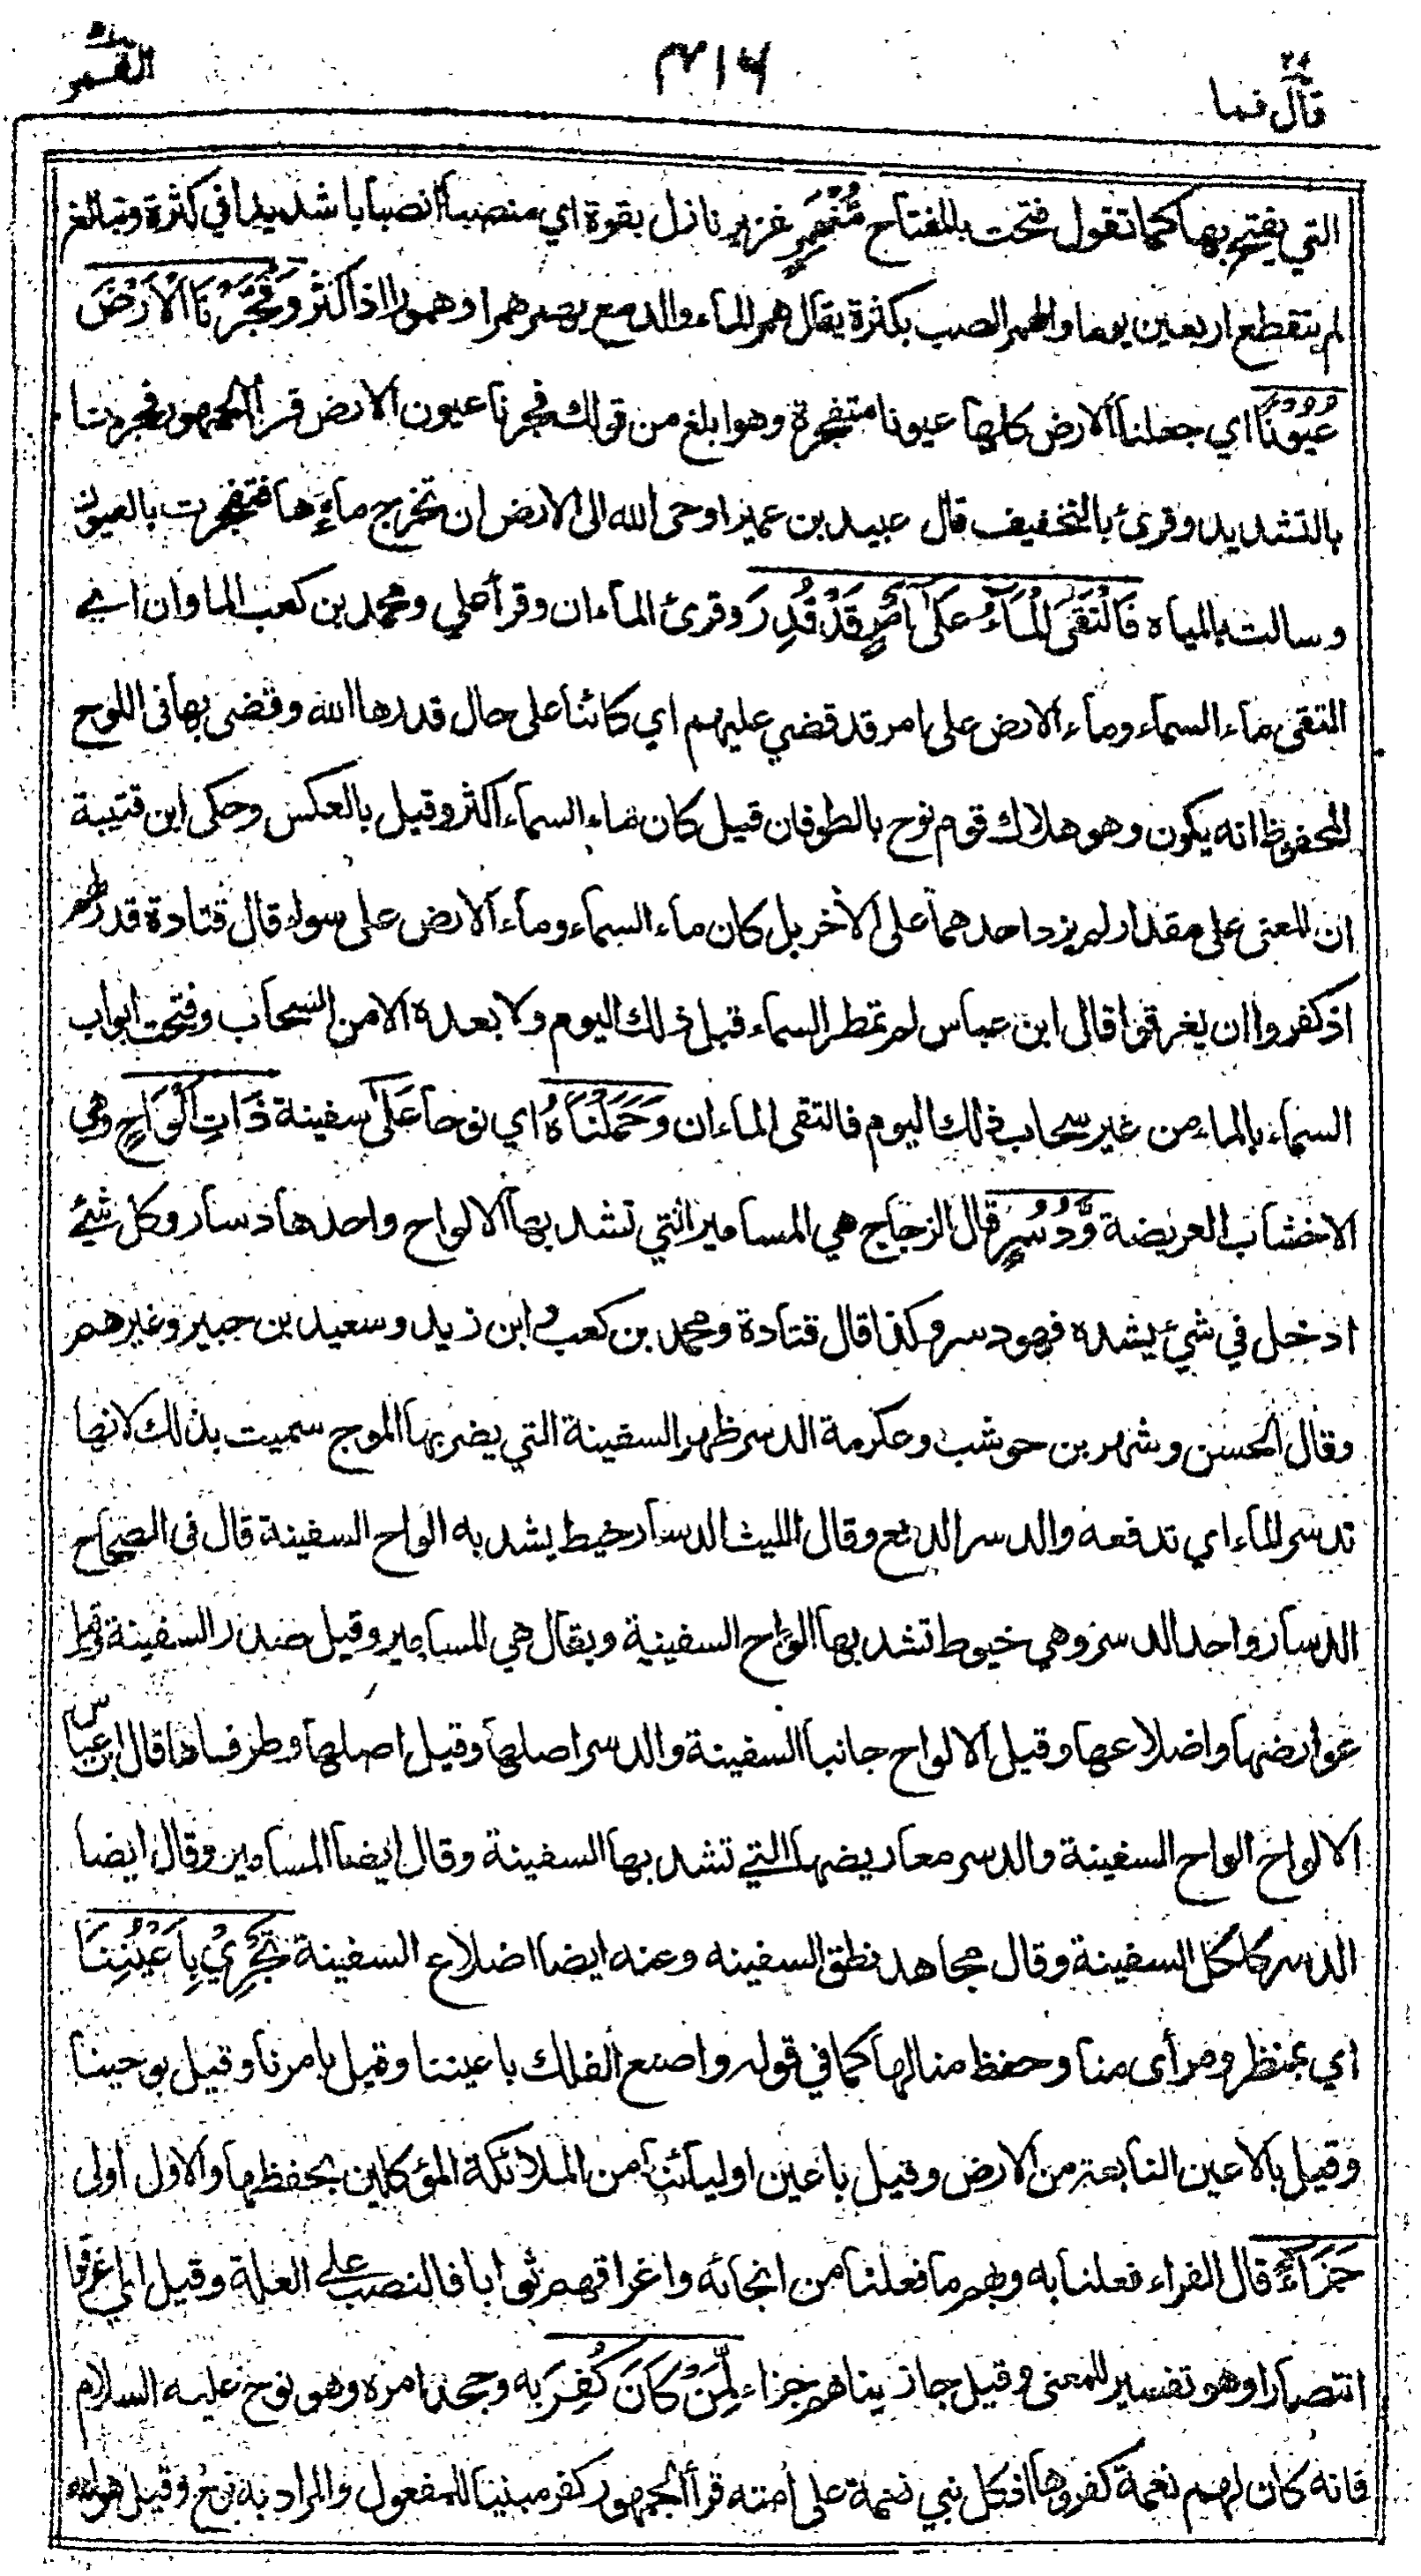 قال فما
٣١٦
القمر
التي يفتح بها كما تقول فتحت بالمفتاح مُّنْهَمِرٍ غزير نازل بقوة اي منصبا انصبابا شديدا في كثرة وتبالغ
لم ينقطع اربعين يوما والهمر الصب بكثرة يقال همر الماء والدمع يهمر همرا وهمورا اذا كثر وَفَجَّرْنَا الْاَرْضَ
عُيُوْنًا اي جعلنا الارض كلها عيونا متفجرة وهو ابلغ من قولك فجرنا عيون الارض قرأ الجمهور فجرنا
بالتشديد وقرئ بالتخفيف قال عبيد بن عمير اوحى الله الى الارض ان تخرج ماءها فتفجرت بالعيون
وسالت بالمياه فَالْتَقَى الْمَآءُ عَلٰٓى اَمْرٍ قَدْ قُدِرَ وقرئ الماءان وقرأ علي ومحمد بن كعب الماوان اي
التقى ماء السماء وماء الارض على امر قد قضي عليهم اي كائنا على حال قدرها الله وقضى بها فى اللوح
المحفوظ انه يكون وهو هلاك قوم نوح بالطوفان قيل كان ماء السماء اكثر وقيل بالعكس وحكى ابن قتيبة
ان المعنى على مقدار لم يزد احدهما على الأخر بل كان ماء السماء وماء الارض على سواء قال قتادة قدر لهم
اذ كفروا ان يغرقوا قال ابن عباس لم تمطر السماء قبل ذلك اليوم ولا بعده الا من السحاب وفتحت ابواب
السماء بالماء من غير سحاب ذلك اليوم فالتقى الماءان وَحَمَلْنَاهُ اي نوحا عَلٰى سفينة ذَاتِ اَلْوَاحٍ وهي
الاخشاب العريضة وَّدُسُرٍ قال الزجاج هي المسامير التي تشد بها الالواح واحدها دسار وكل شئ
ادخل في شيء يشده فهو دسر وكذا قال قتادة ومحمد بن كعب وابن زيد وسعيد بن جبير وغيرهم
وقال الحسن وشهر بن حوشب وعكرمة الدسر ظهر السفينة التي يضربها الموج سميت بذلك لانها
تدسر الماء اي تدفعه والدسر الدفع وقال الليث الدسار خيط يشد به الواح السفينة قال فى الصحاح
الدسار واحد الدسر وهي خيوط تشد بها الواح السفينة ويقال هي المسامير وقيل صدر السفينة وقيل
عوارضها واضلاعها وقيل الالواح جانبا السفينة والدسر اصلها وقيل اصلها وطرفاها قال ابن عباس
الالواح الواح السفينة والدسر معاريضها التي تشد بها السفينة وقال ايضا المسامير وقال ايضا
الدسر كلكل السفينة وقال مجاهد نطق السفينه وعنه ايضا اضلاع السفينة تَجْرِيْ بِاَعْيُنِنَا
اي بمنظر ومرأى منا وحفظ منا لها كما في قوله واصنع الفلك باعيننا وقيل بامرنا وقيل بوحينا
وقيل بالاعين النابعة من الارض وقيل باعين اوليائنا من الملائكة المؤكلين بحفظها والاول اولى
جَزَآءً قال الفراء فعلنا به وبهم ما فعلنا من انجائه واغراقهم ثوابا فالنصب على العلة وقيل اي اغرقوا
انتصارا وهو تفسير للمعنى وقيل جازيناهم جزاء لِّمَنْ كَانَ كُفِرَ به وجحد امره وهو نوح عليه السلام
فانه كان لهم نعمة كفروها اذ كل نبي نعمة على امته قرأ الجمهور كفر مبنيا للمفعول والمراد به نوح وقيل هو الله